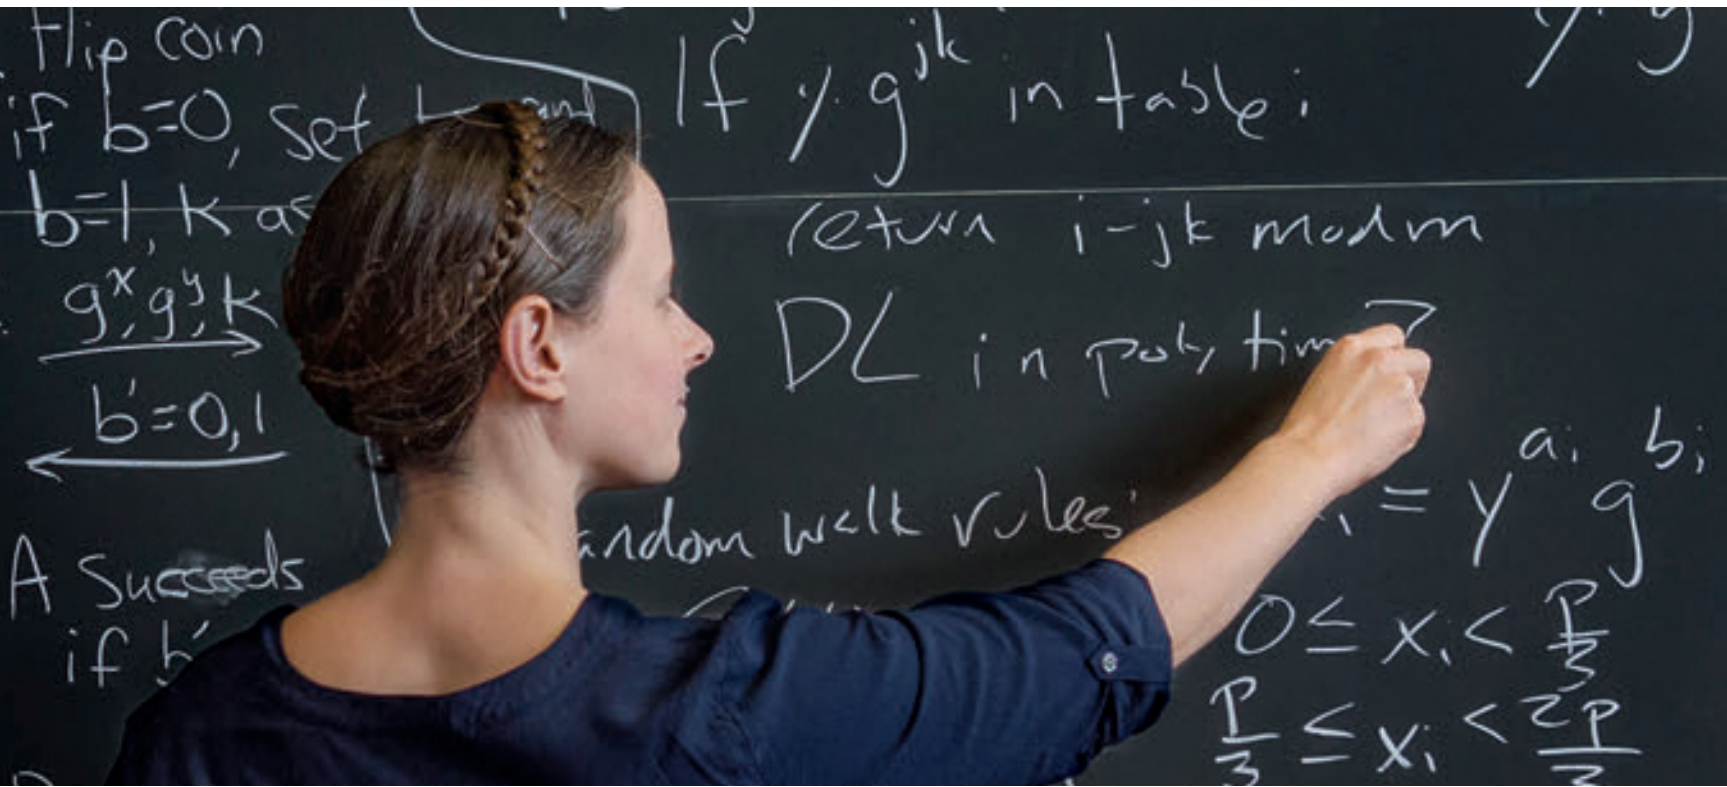 Flip coin
if b=0, set
b=1, K as
g^x, g^y, K
b'=0,1
A Succeeds
if b'
If y·g^jk in table:
return i-jk mod m
DL in poly tim
random walk rules:
= y^a_i g^b_i
0 ≤ x_i < P/3
P/3 ≤ x_i < 2P/3